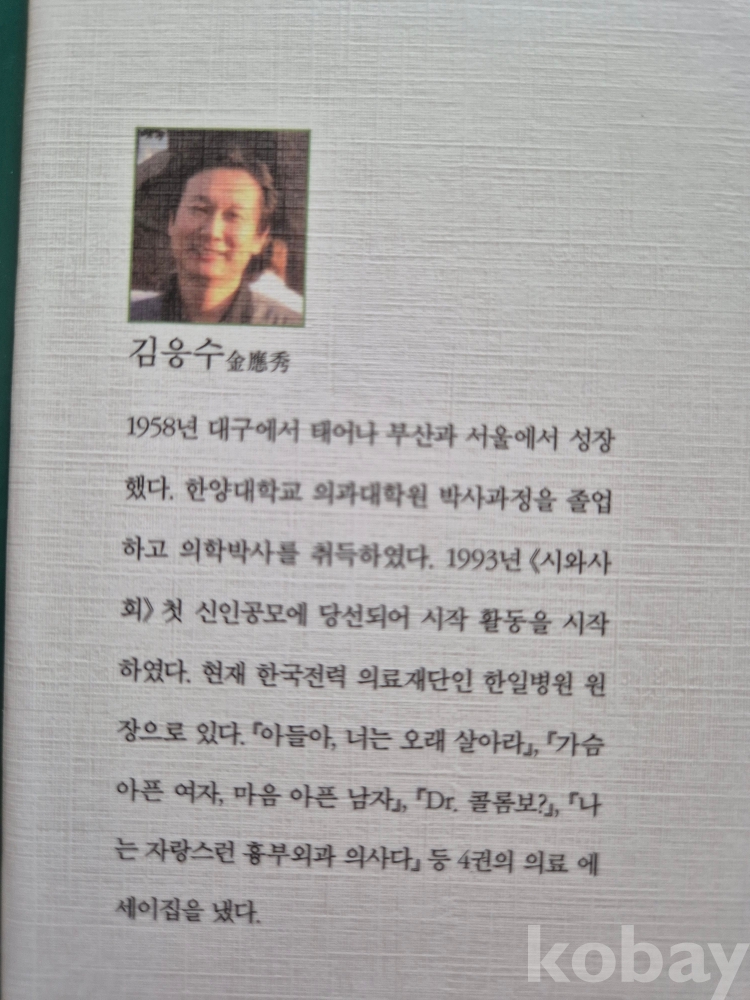 김응수金應秀
1958년 대구에서 태어나 부산과 서울에서 성장
했다. 한양대학교 의과대학원 박사과정을 졸업
하고 의학박사를 취득하였다. 1993년 《시와사
회》 첫 신인공모에 당선되어 시작 활동을 시작
하였다. 현재 한국전력 의료재단인 한일병원 원
장으로 있다. 『아들아, 너는 오래 살아라』, 『가슴
아픈 여자, 마음 아픈 남자』, 『Dr. 콜롬보?』, 『나
는 자랑스런 흉부외과 의사다』 등 4권의 의료 에
세이집을 냈다.
kobay